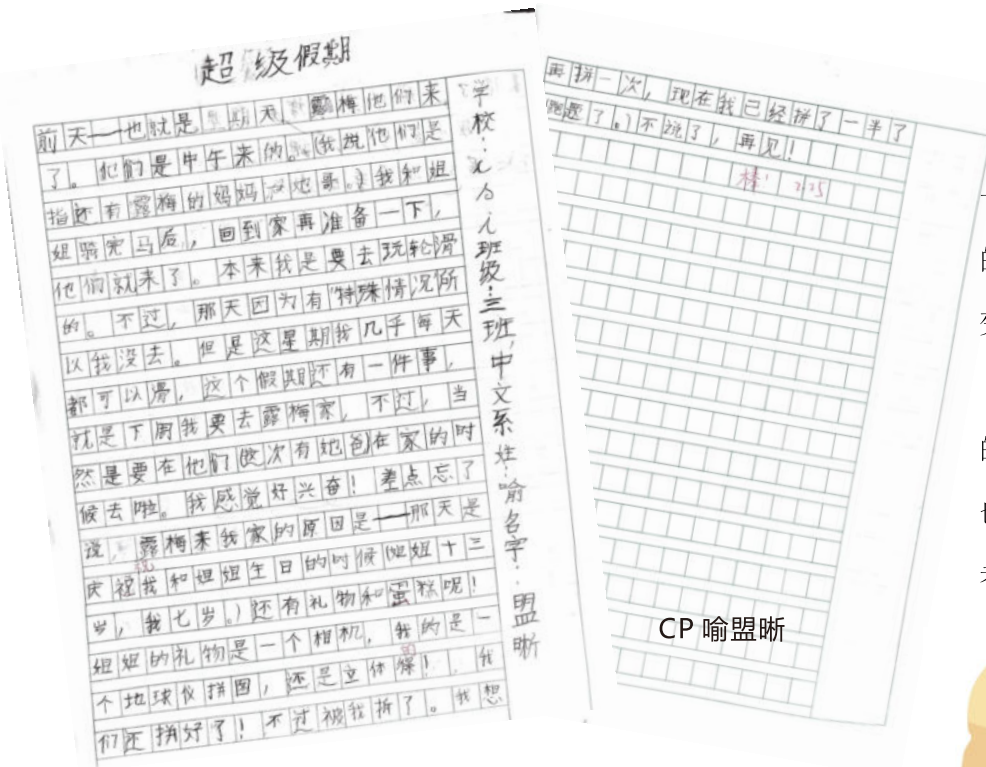 超级假期
前天——也就是星期天,露梅他们来
了。他们是中午来的。(我说他们是
指还有露梅的妈妈 她哥。)我和姐
姐骑完马后,回到家再准备一下,
他们就来了。本来我是要去玩轮滑
的。不过,那天因为有特殊情况所
以我没去。但是这星期我几乎每天
都可以滑,这个假期还有一件事,
就是下周我要去露梅家,不过,当
然是要在他们(这次有她爸)在家的时
候去啦。我感觉好兴奋!差点忘了
说,露梅来我家的原因是——那天是
庆祝我和姐姐生日的时候(姐姐十三
岁,我七岁。)还有礼物和蛋糕呢!
姐姐的礼物是一个相机,我的是一
个地球仪拼图,还是立体的!我
们还拼好了!不过被我拆了。我想
学校: 班级:三班,中文系姓:喻名字:盟晰
再拼一次,现在我已经拼了一半了
(跑题了。)不说了,再见!
棒! 2.25
CP 喻盟晰
的
的